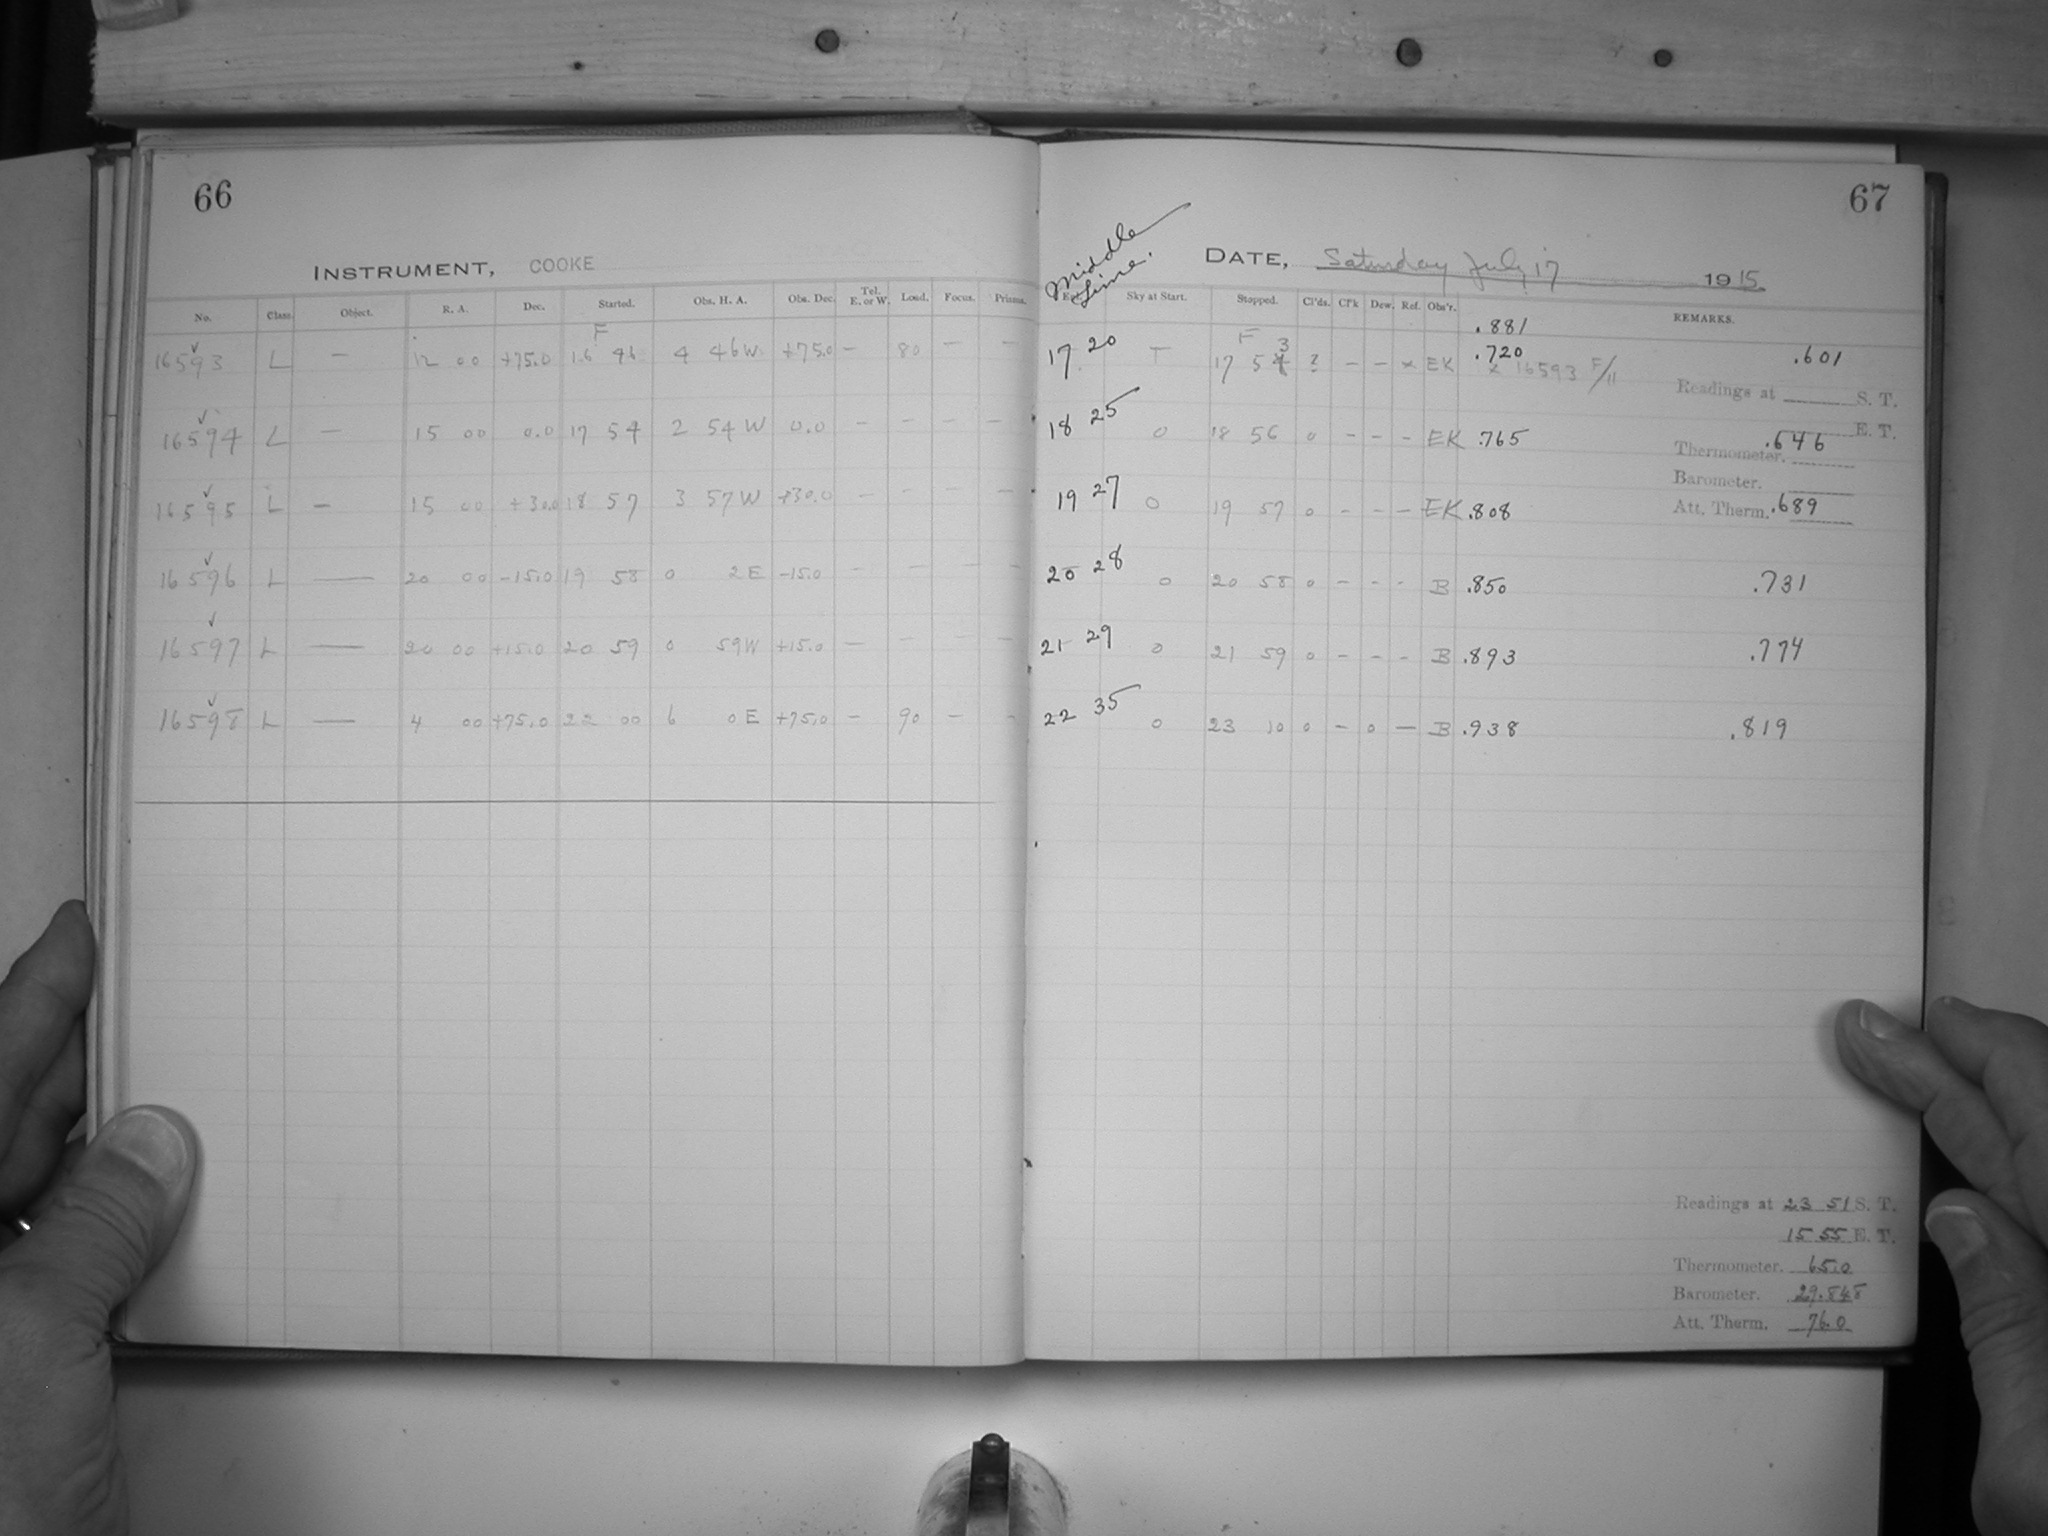 66
INSTRUMENT, COOKE
No. Class. Object. R. A. Dec. Started. Obs. H. A. Obs. Dec. Tel. E. or W. Load. Focus. Prisms.
F
16593 L — 12 00 +75.0 16 46 4 46W +75.0 — 80 — —
16594 L — 15 00 0.0 17 54 2 54 W 0.0 — — — —
16595 L — 15 00 +30.0 18 57 3 57W +30.0 — — — —
16596 L — 20 00 -15.0 19 58 0 2E -15.0 — — — —
16597 L — 20 00 +15.0 20 59 0 59W +15.0 — — — —
16598 L — 4 00 +75.0 22 00 6 0E +75.0 — 90 — —
67
Middle Time.
DATE, Saturday July 17 1915
Sky at Start. Stopped. Cl'ds. Cl'k Dew. Ref. Obs'r. REMARKS.
.881
F 3
17 20 T 17 54 3 — — x EK .720 .601
x 16593 F/11
Readings at S. T.
E. T.
18 25 0 18 56 0 — — — EK .765 .646
Thermometer.
Barometer.
19 27 0 19 57 0 — — — EK .808 Att. Therm. .689
20 28 0 20 58 0 — — — B .850 .731
21 29 0 21 59 0 — — — B .893 .774
22 35 0 23 10 0 — 0 — B .938 .819
Readings at 23 51 S. T.
15 55 E. T.
Thermometer. 65.0
Barometer. 29.848
Att. Therm. 76.0